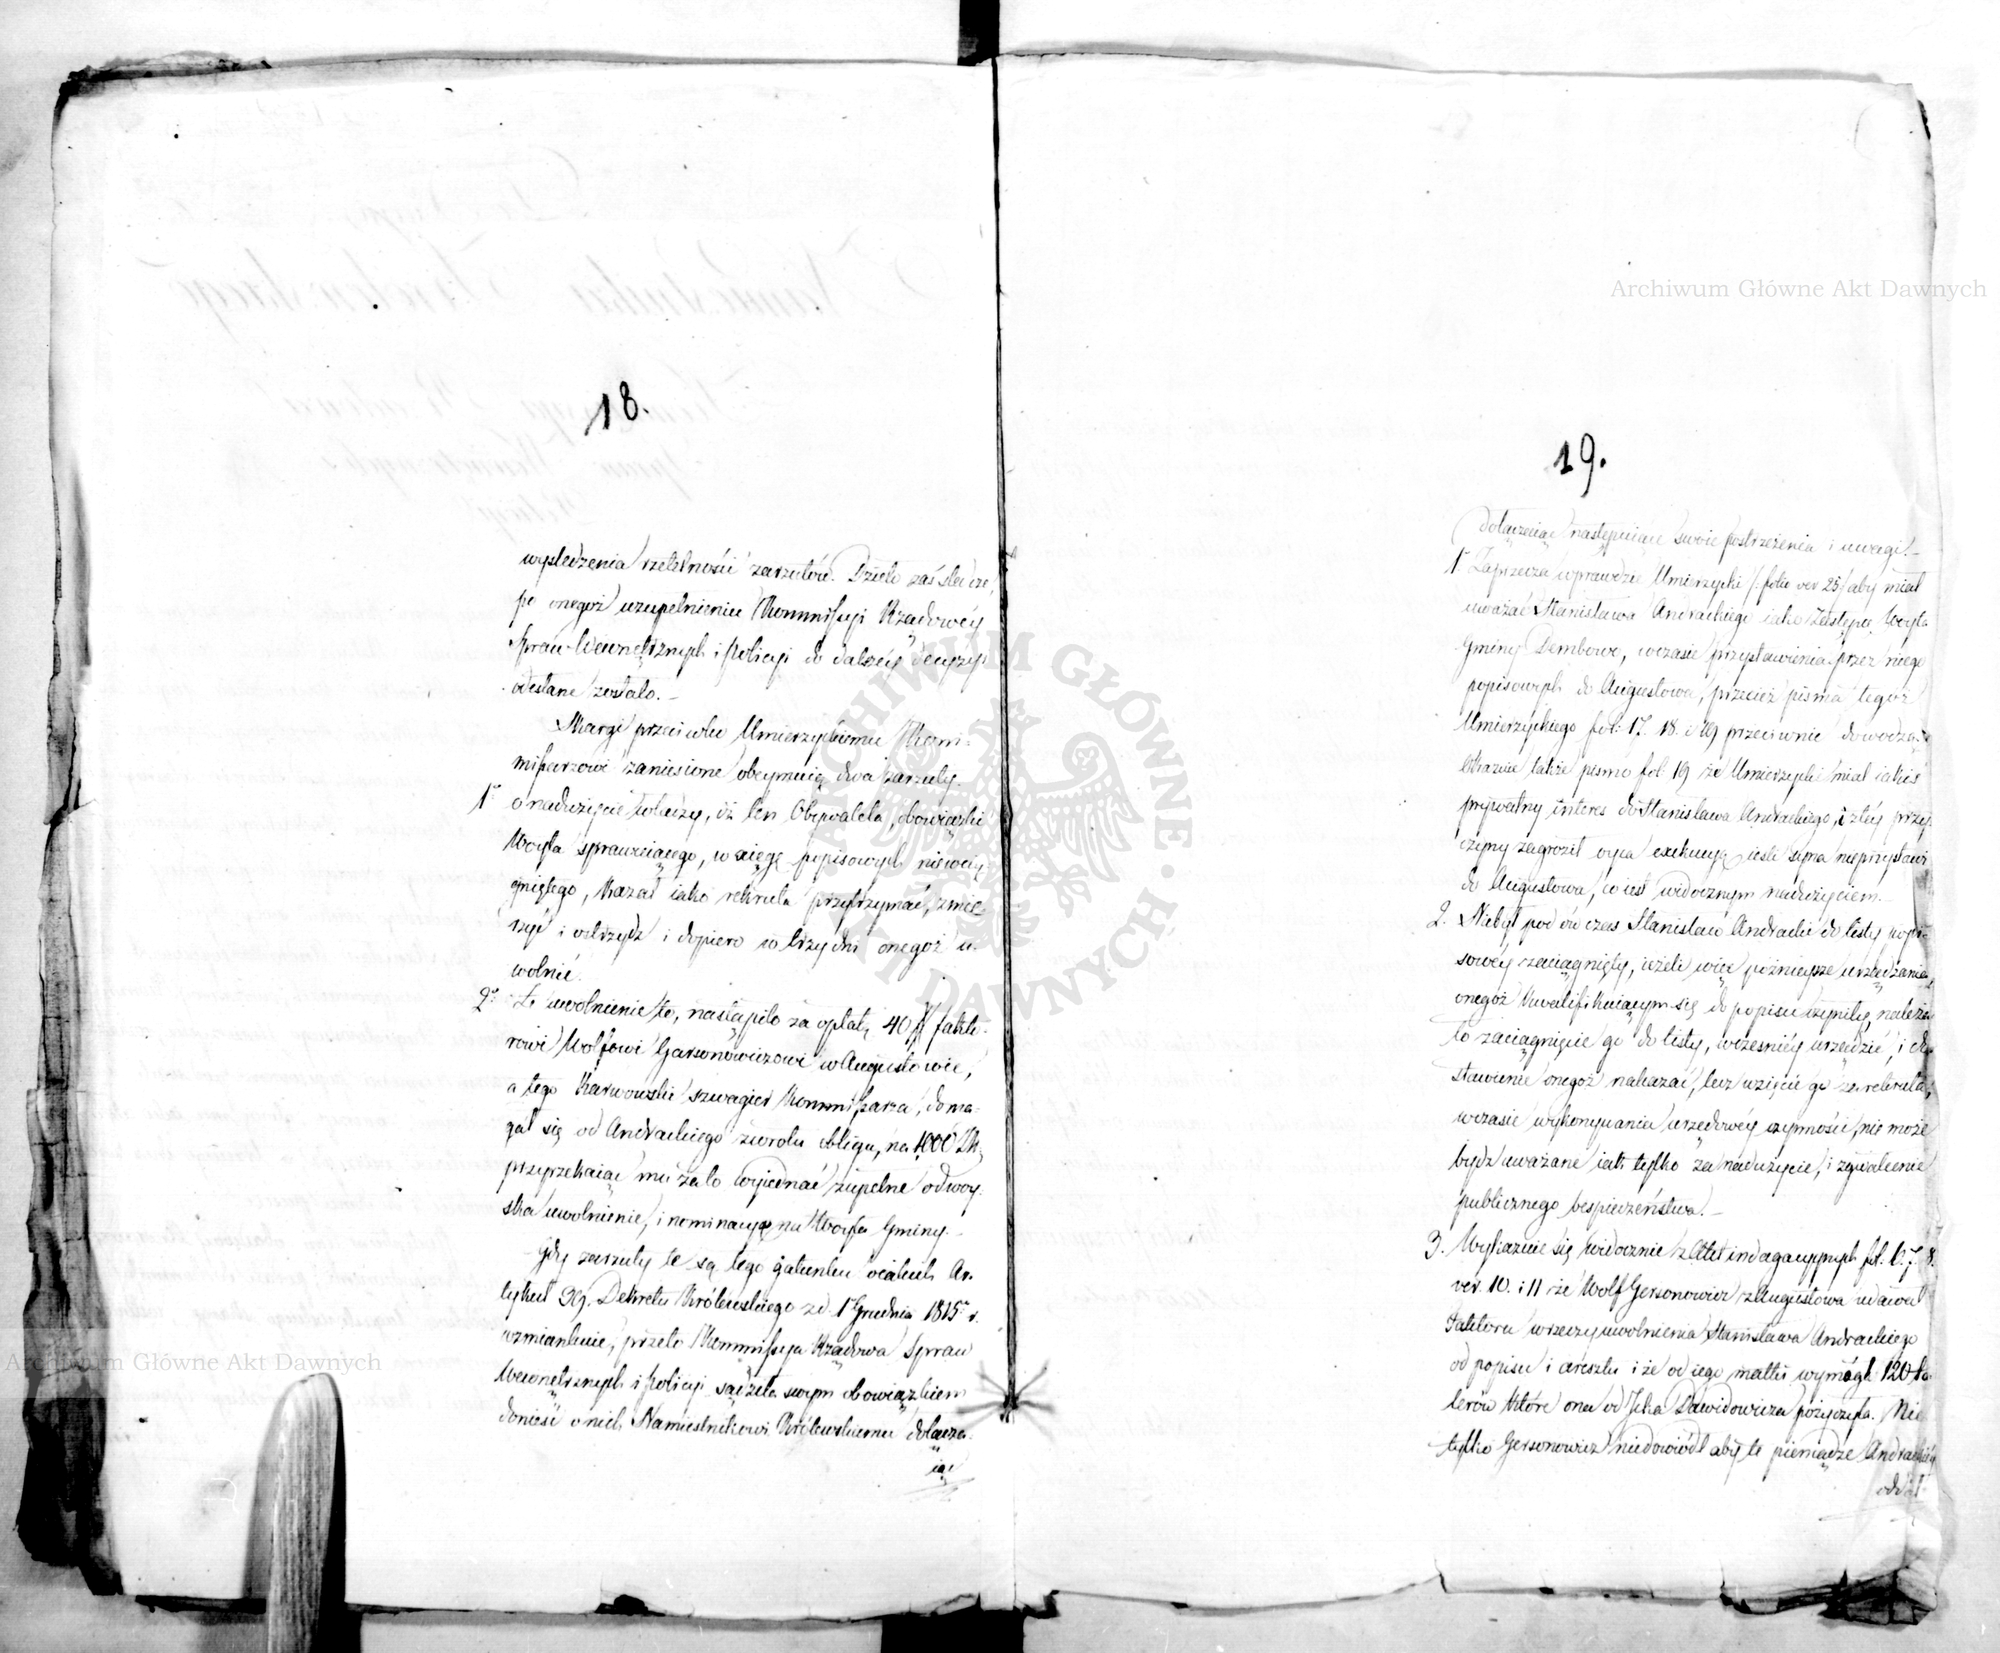 18.
wysledzenia rzetelności zarzutów. Dzieło zaś śledcze,
po onegoż uzupełnieniu Kommissyi Rządowéy
Spraw Wewnętrznych i Policyi do dalszéy decyzyi
odesłane zostało.
Skargi przeciwko Umierzyckiemu Kom-
missarzowi zaniesione obeymuią dwa zarzuty.
1° o nadużycie władzy, iż ten Obywatela, obowiązki
Woyta sprawuiącego, w xięgę popisowych niewcią-
gniętego, kazał iako rekruta przytrzymać, zmie-
rzyć i ostrzydz i dopiero w trzy dni onegoż u-
wolnić.
2° że uwolnienie to, nastąpiło za opłatą 40 # fakto-
rowi Wolfowi Garsonowiczowi w Augustowie,
a tego Karwowski szwagier Kommissarza, doma-
gał się od Andrackiego zwrotu obligu, na 1000 Zł.
przyrzekaiąc mu za to wyiednać zupełne od woy-
ska uwolnienie, i nominacyę na Woyta Gminy.
Gdy zarzuty te są tego gatunku o iakich Ar-
tykuł 39. Dekretu Królewskiego z d. 1° Grudnia 1815° r.
wzmiankuie, przeto Kommissya Rządowa Spraw
Wewnętrznych i Policyi sądziła swym obowiązkiem
donieść o nich Namiestnikowi Królewskiemu dołącza-
iąc
19.
dołączaiąc następuiące swoie postrzeżenia i uwagi.
1° Zaprzecza wprawdzie Umierzycki /: folio ver 25/ aby miał
uważać Stanisława Andrackiego iako Zastępcę Woyta
Gminy Dembowo, w czasie przystawienia przez niego
popisowych do Augustowa, przecież pisma tegoż
Umierzyckiego fol: 17. 18. i 19 przeciwnie dowodzą,
Okazuie także pismo fol 19 że Umierzycki miał iakiś
prywatny interes do Stanisława Andrackiego, i z téy przy-
czyny zagroził oyca exekucyą iesli syna nieprzystawi
do Augustowa, co iest widocznym nadużyciem.
2. Niebył pod ów czas Stanisław Andracki do listy popi-
sowéy zaciągnięty, ieżeli więc późnieysze urządzenie
onegoż kwalifikuiącym się do popisu czyniły, należa-
ło zaciągnięcie go do listy, wcześniéy urządzić, i do-
stawienie onegoż nakazać, lecz wzięcie go za rekruta,
w czasie wykonywania urzędowéy czynności, nie może
bydź uważane iak tylko za nadużycie, i zgwałcenie
publicznego bespieczeństwa.
3. Wykazuie się widocznie z Akt indagacyynych fol. 6. 7. 8.
ver. 10. i 11 że Wolf Gersonowicz z Augustowa udawał
Faktora w rzeczy uwolnienia Stanisława Andrackiego
od popisu i aresztu i że od iego matki wymógł 120 ta-
lerów które ona od Icka Dawidowicza pożyczyła. Nie
tylko Gersonowicz niedowiódł aby te pieniądze Andrackiéy
oddał
Archiwum Główne Akt Dawnych
Archiwum Główne Akt Dawnych
ARCHIWUM GŁÓWNE AKT DAWNYCH